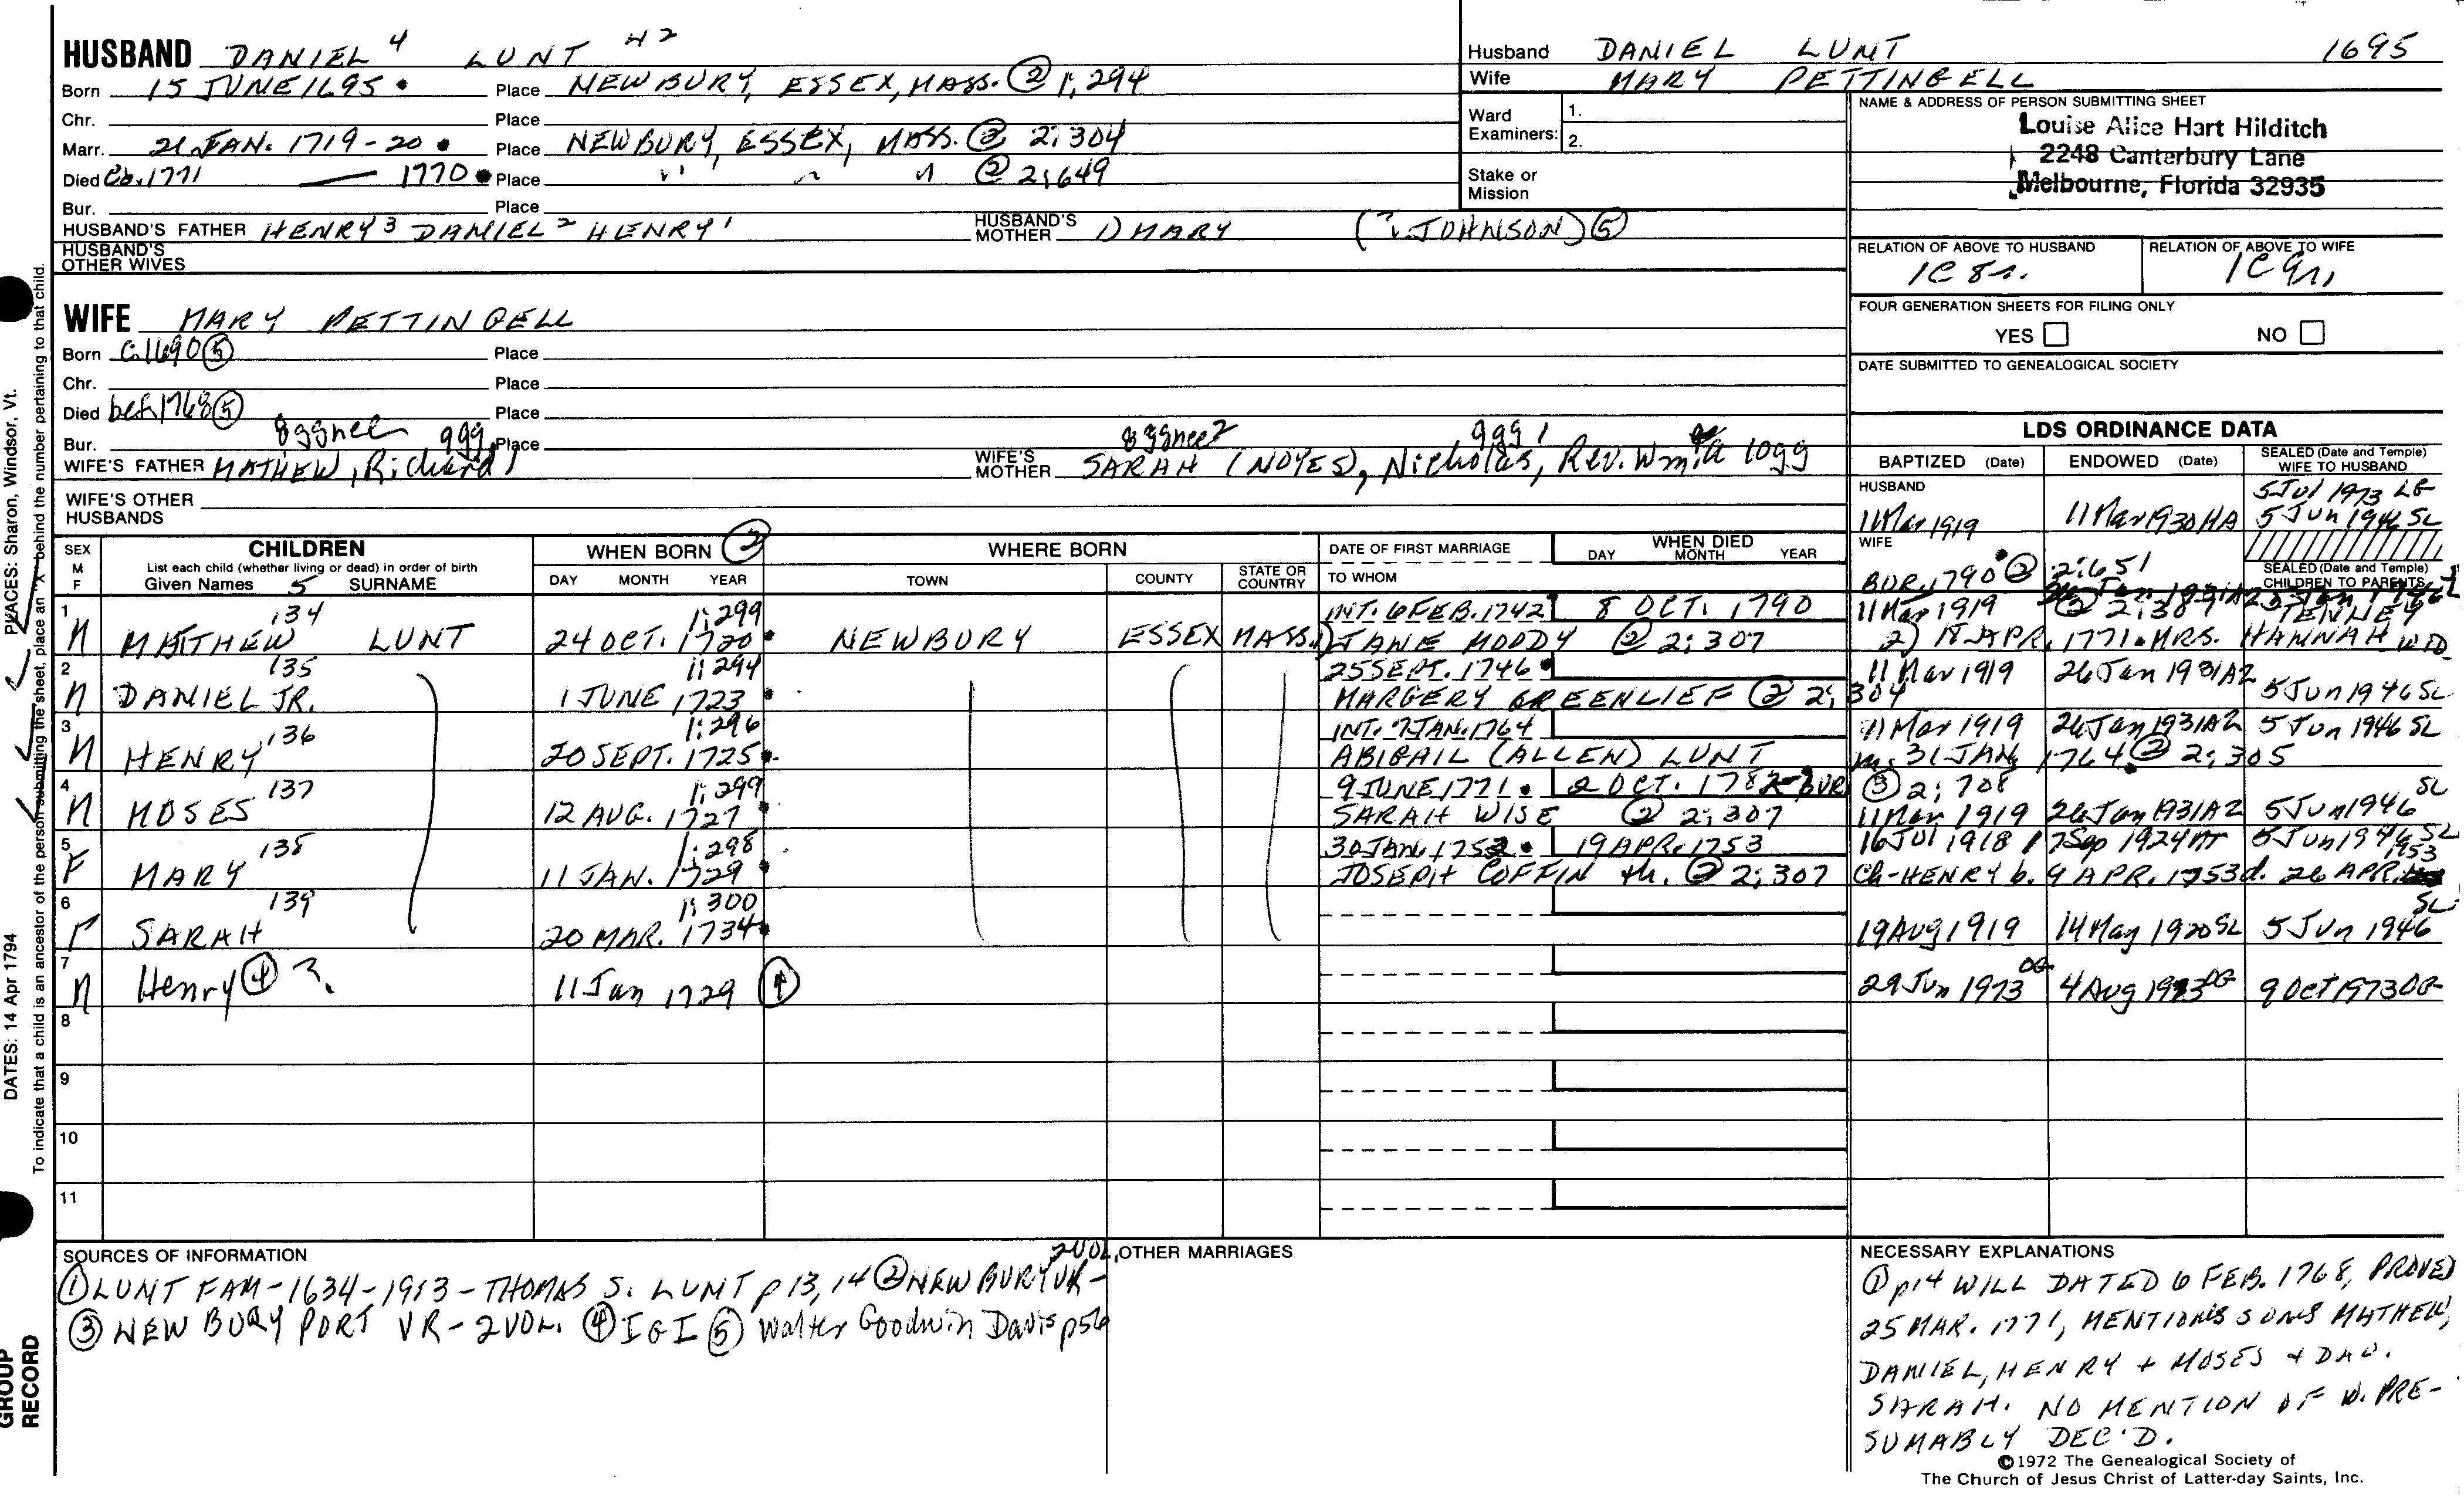 HUSBAND DANIEL 4 LUNT 42
Born 15 JUNE 1695 Place NEWBURY, ESSEX, MASS. ② 1; 294
Chr. Place
Marr. 21 JAN. 1719-20 Place NEWBURY, ESSEX, MASS. ② 2; 304
Died 1771 — 1770 Place " " " ② 2; 649
Bur. Place
HUSBAND'S FATHER HENRY 3 DANIEL 2 HENRY 1 HUSBAND'S MOTHER 1) MARY (? JOHNSON) ⑤
HUSBAND'S OTHER WIVES
WIFE MARY PETTINGELL
Born C. 1690 ⑤ Place
Chr. Place
Died bef. 1768 ⑤ Place
Bur. Place
8ggnee ggg 8ggnee 2 ggg 1
WIFE'S FATHER MATHEW, Richard 1 WIFE'S MOTHER SARAH (NOYES), Nicholas, Rev. Wm 10gg
WIFE'S OTHER HUSBANDS
Husband DANIEL LUNT 1695
Wife MARY PETTINGELL
Ward Examiners: 1. 2.
Stake or Mission
NAME & ADDRESS OF PERSON SUBMITTING SHEET
Louise Alice Hart Hilditch
2248 Canterbury Lane
Melbourne, Florida 32935
RELATION OF ABOVE TO HUSBAND RELATION OF ABOVE TO WIFE
1C 8r. 1C 9r.
FOUR GENERATION SHEETS FOR FILING ONLY
YES NO
DATE SUBMITTED TO GENEALOGICAL SOCIETY
LDS ORDINANCE DATA
BAPTIZED (Date) ENDOWED (Date) SEALED (Date and Temple) WIFE TO HUSBAND
HUSBAND 5 Jul 1973 LG
11 Mar 1919 11 Mar 1930 HA 5 Jun 1946 SL
WIFE
BUR. 1790 ② 2;651
SEALED (Date and Temple) CHILDREN TO PARENTS
SEX M F CHILDREN WHEN BORN ② WHERE BORN DATE OF FIRST MARRIAGE WHEN DIED
List each child (whether living or dead) in order of birth
Given Names 5 SURNAME DAY MONTH YEAR TOWN COUNTY STATE OR COUNTRY TO WHOM DAY MONTH YEAR
1 134 1; 299 INT. 6 FEB. 1742 8 OCT. 1790 11 Mar 1919 ② 2; 307 TENNEY
M MATTHEW LUNT 24 OCT. 1720 NEWBURY ESSEX MASS. 1) JANE MOODY ② 2; 307 2) 18 APR. 1771 MRS. HANNAH WID.
2 135 1; 294 25 SEPT. 1746 11 Mar 1919 26 Jan 1931 AZ
M DANIEL JR. 1 JUNE 1723 MARGERY GREENLIEF ② 2; 304 5 Jun 1946 SL
3 136 1; 296 INT. 7 JAN. 1764 11 Mar 1919 26 Jan 1931 AZ 5 Jun 1946 SL
M HENRY 20 SEPT. 1725 ABIGAIL (ALLEN) LUNT m. 31 JAN. 1764 ② 2; 305
4 137 1; 299 9 JUNE 1771 2 OCT. 1782 BUR ③ 2; 708 SL
M MOSES 12 AUG. 1727 SARAH WISE ② 2; 307 11 Mar 1919 26 Jan 1931 AZ 5 Jun 1946
5 138 1; 298 30 JAN. 1752 19 APR. 1753 16 Jul 1918 17 Sep 1924 5 Jun 1946 SL
F MARY 11 JAN. 1729 JOSEPH COFFIN 4th. ② 2; 307 Ch-HENRY b. 9 APR. 1753 d. 26 APR. 1953
6 139 1; 300 SL
F SARAH 20 MAR. 1734 19 Aug 1919 14 May 1920 SL 5 Jun 1946
7 M Henry ④ ? 11 Jan 1729 ④ 29 Jun 1973 OG 4 Aug 1973 OG 9 Oct 1973 OG
8
9
10
11
SOURCES OF INFORMATION 2 VOL, OTHER MARRIAGES
① LUNT FAM-1634-1913-THOMAS S. LUNT p 13, 14 ② NEWBURY VR-
③ NEWBURY PORT VR-2 VOL. ④ IGI ⑤ Walter Goodwin Davis p56
NECESSARY EXPLANATIONS
① p14 WILL DATED 6 FEB. 1768, PROVED
25 MAR. 1771, MENTIONS SONS MATHEW,
DANIEL, HENRY + MOSES + DAU.
SARAH. NO MENTION OF W. PRE-
SUMABLY DEC'D.
©1972 The Genealogical Society of
The Church of Jesus Christ of Latter-day Saints, Inc.
PLACES: Sharon, Windsor, Vt.
DATES: 14 Apr 1794
To indicate that a child is an ancestor of the person submitting the sheet, place an "X" behind the number pertaining to that child.
GROUP RECORD